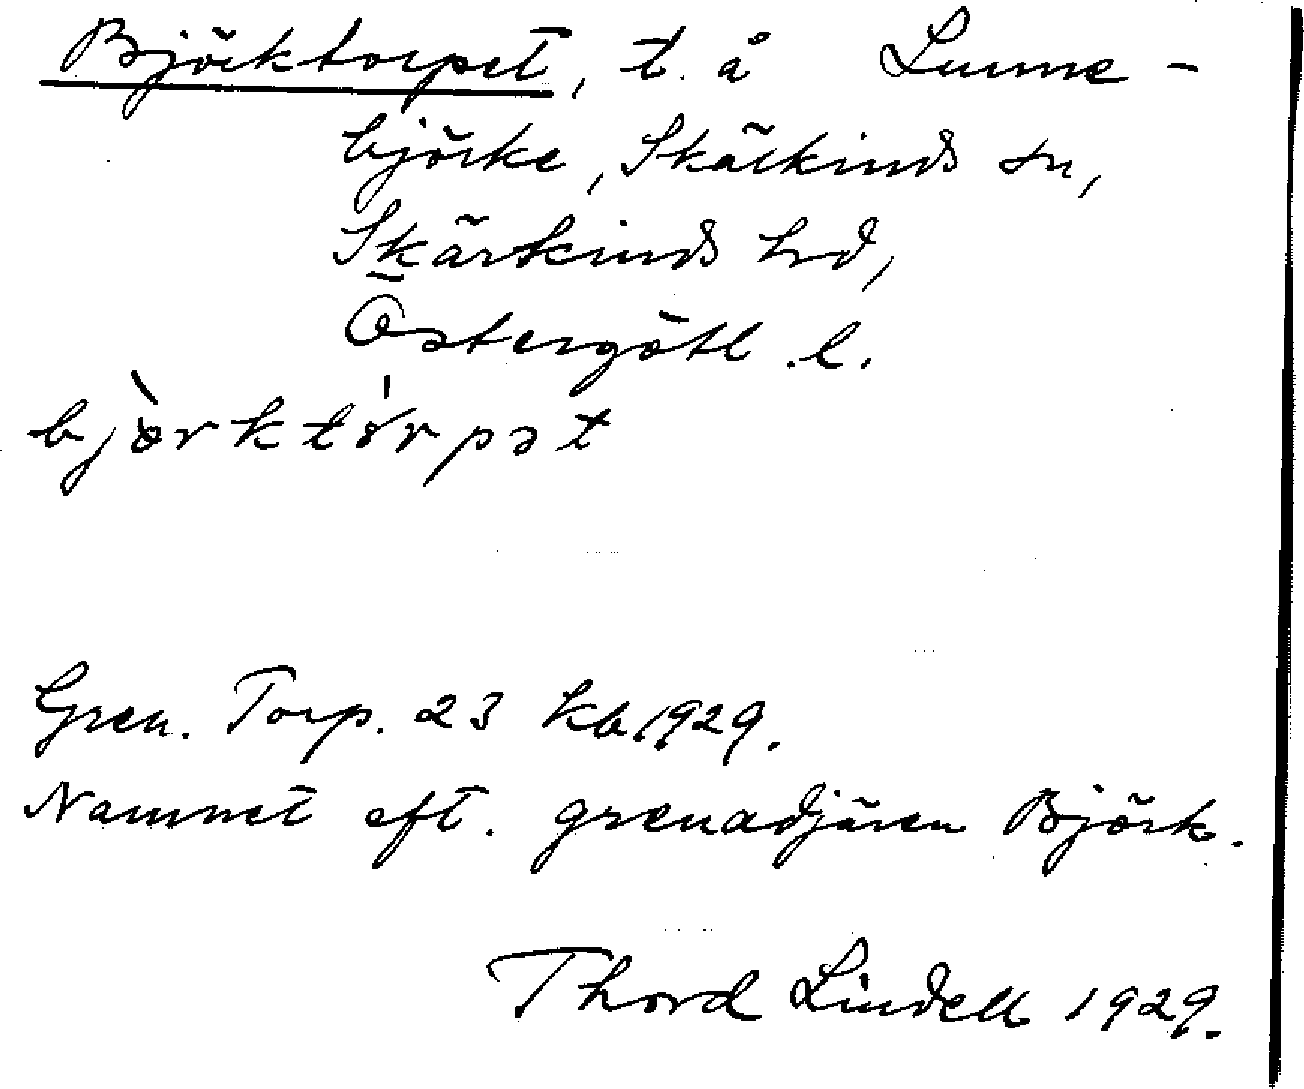 Björktorpet, t. å Lunne-
björke, Skärkinds sn,
Skärkinds hd,
Östergötl. l.
bjòrktórpət
Gren. Torp. 23 kb 1929.
Namnet eft. grenadjären Björk.
Thord Lindell 1929.